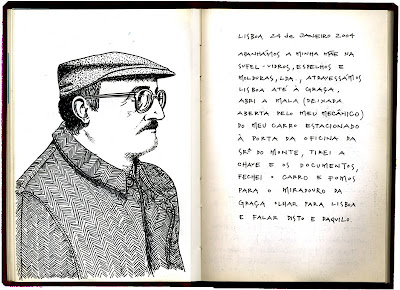 LISBOA 24 de JANEIRO 2004
APANHÁMOS A MINHA MÃE NA
SUFEL-VIDROS, ESPELHOS E
MOLDURAS, LDA., ATRAVESSÁMOS
LISBOA ATÉ À GRAÇA,
ABRI A MALA (DEIXADA
ABERTA PELO MEU MECÂNICO)
DO MEU CARRO ESTACIONADO
À PORTA DA OFICINA DA
SRª DO MONTE, TIREI A
CHAVE E OS DOCUMENTOS,
FECHEI O CARRO E FOMOS
PARA O MIRADOURO DA
GRAÇA OLHAR PARA LISBOA
E FALAR DISTO E DAQUILO.